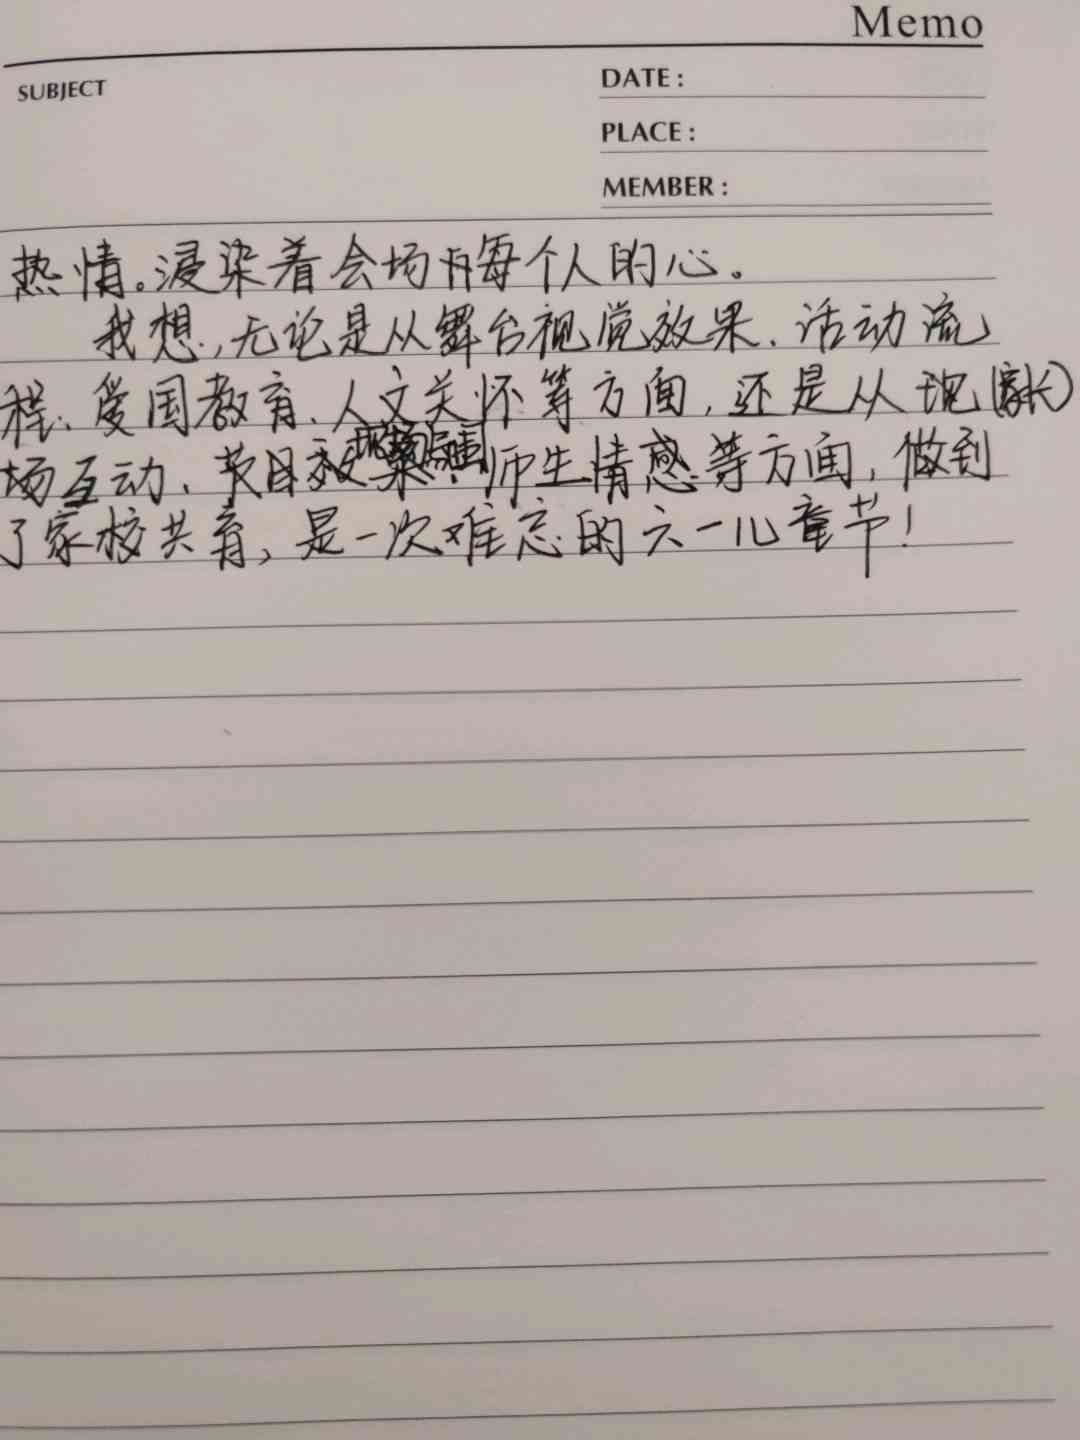 Memo
SUBJECT
DATE:
PLACE:
MEMBER:
热情。浸染着会场每个人的心。
我想,无论是从舞台视觉效果、活动流
程、爱国教育、人文关怀等方面,还是从现(家长)
场互动、节目效果、师生情感等方面,做到
了家校共育,是一次难忘的六一儿童节!